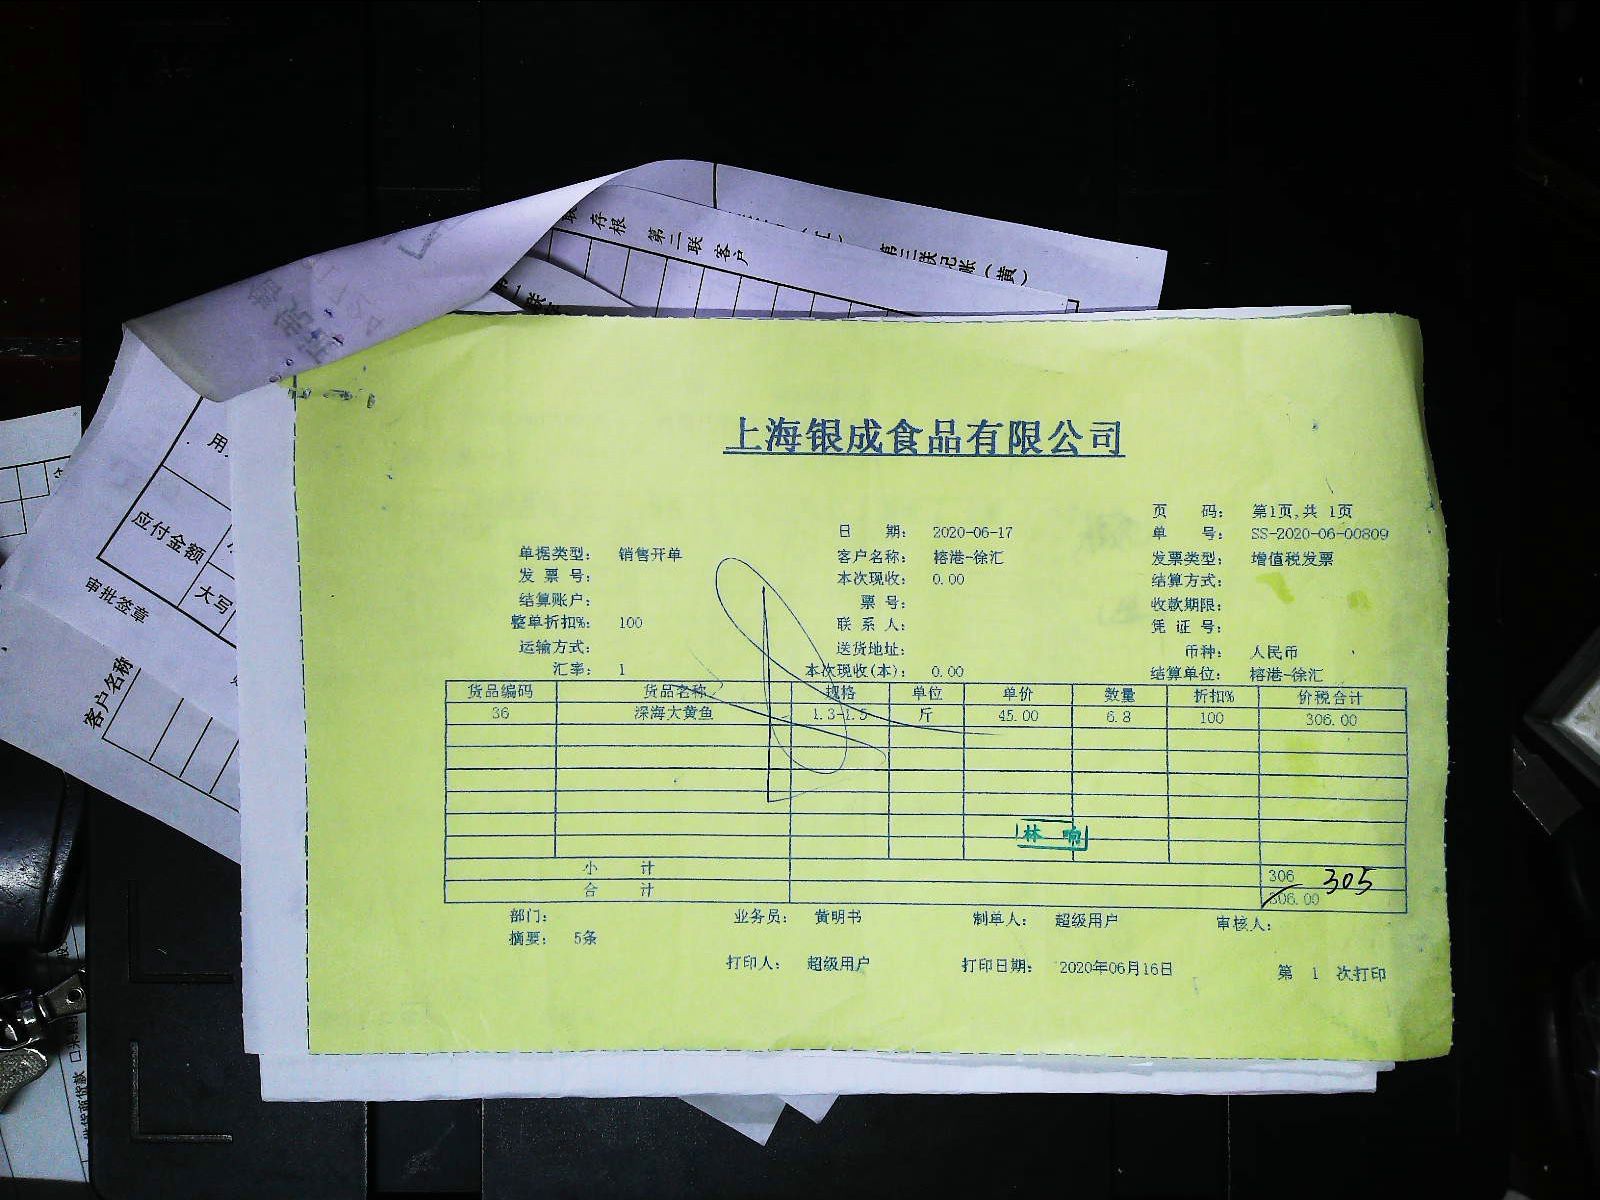 存根
第二联 客户
第三联记账(黄)
用
应付金额
大写
审批签章
客户名称
上海银成食品有限公司
页 码: 第1页,共 1页
日 期: 2020-06-17 单 号: SS-2020-06-00809
单据类型: 销售开单 客户名称: 榕港-徐汇 发票类型: 增值税发票
发 票 号: 本次现收: 0.00 结算方式:
结算账户: 票 号: 收款期限:
整单折扣%: 100 联 系 人: 凭 证 号:
运输方式: 送货地址: 币种: 人民币
汇率: 1 本次现收(本): 0.00 结算单位: 榕港-徐汇
货品编码 货品名称 规格 单位 单价 数量 折扣% 价税合计
36 深海大黄鱼 1.3-1.5 斤 45.00 6.8 100 306.00
林 响
小 计 306 305
合 计 306.00
部门: 业务员: 黄明书 制单人: 超级用户 审核人:
摘要: 5条
打印人: 超级用户 打印日期: 2020年06月16日 第 1 次打印